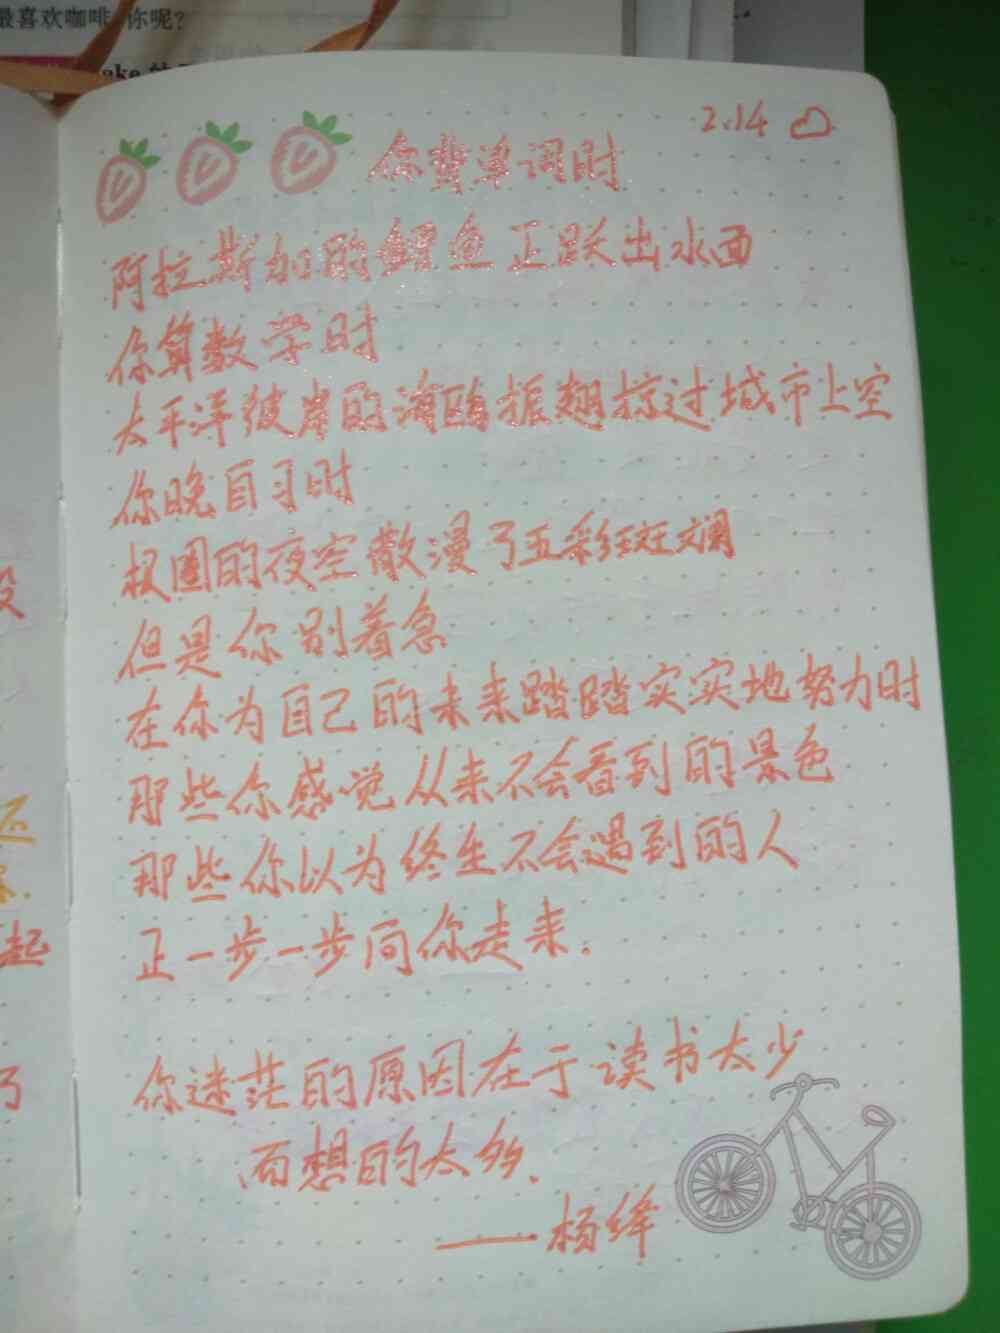 最喜欢咖啡,你呢?
ake
2.14
你背单词时
阿拉斯加的鳕鱼正跃出水面
你算数学时
太平洋彼岸的海鸥振翅掠过城市上空
你晚自习时
极圈的夜空散漫了五彩斑斓
但是你别着急
在你为自己的未来踏踏实实地努力时
那些你感觉从来不会看到的景色
那些你以为终生不会遇到的人
正一步一步向你走来.
你迷茫的原因在于读书太少
而想的太多.
——杨绛
起